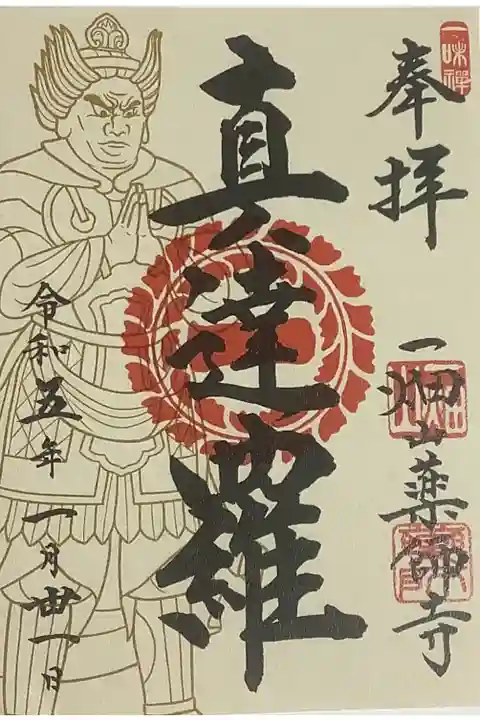 一味禅
奉拝
一畑山薬師寺
真達羅
令和五年一月卅一日